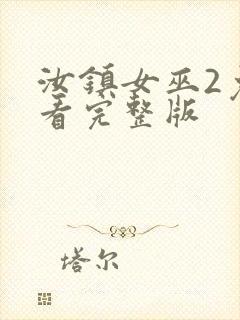 汝鎮女巫2免
看完整版
塔尔